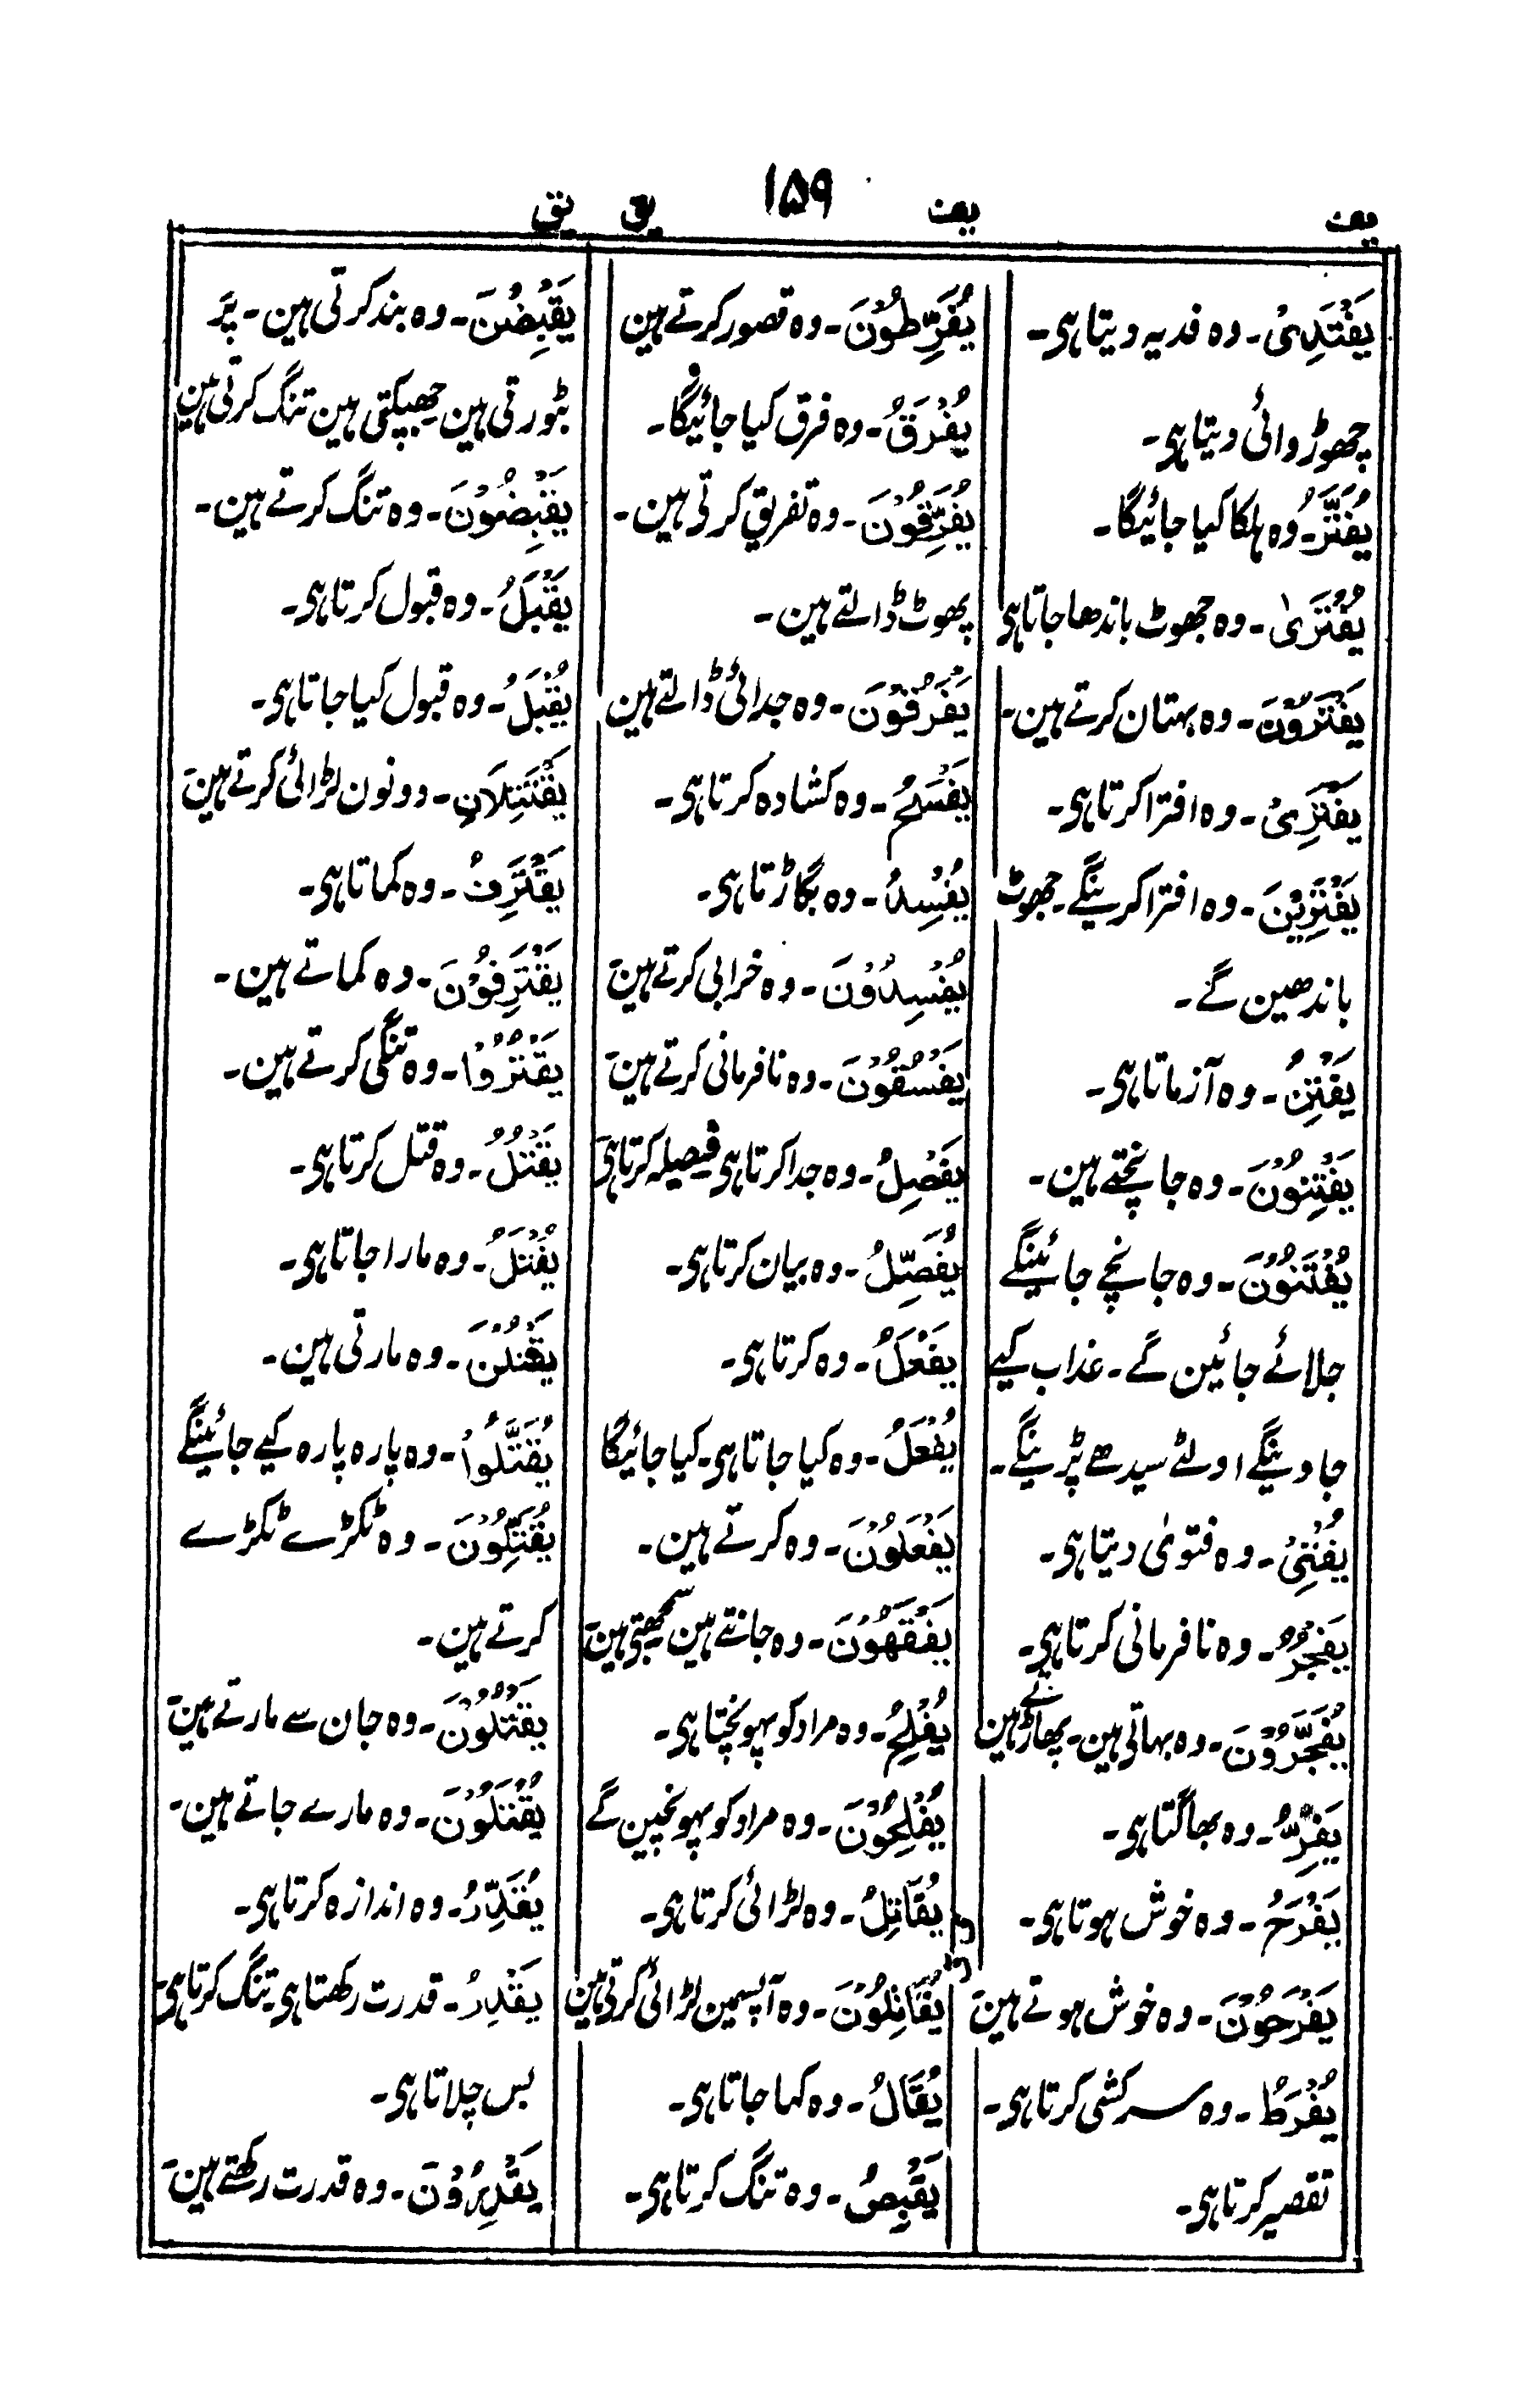 یف
یف
۱۵۹
یق
یق
یَفْتَدِیْ۔ وہ فدیہ دیتا ہی۔
چھوڑ وائی دیتا ہی۔
یُفَتَّرُ۔ وہ ہلکا کیا جائیگا۔
یُفْتَرٰی۔ وہ جھوٹ باندھا جاتا ہی
یَفْتَرُوْنَ۔ وہ بہتان کرتے ہین۔
یَفْتَرِیْ۔ وہ افترا کرتا ہی۔
یَفْتَرِیْنَ۔ وہ افترا کرینگے۔ جھوٹ
باندھین گے۔
یَفْتِنُ۔ وہ آزماتا ہی۔
یَفْتِنُوْنَ۔ وہ جانچتے ہین۔
یُفْتَنُوْنَ۔ وہ جانچے جائینگے
جلائے جائین گے۔ عذاب کیے
جاوینگے اولٹے سیدھے پڑینگے۔
یُفْتِیْ۔ وہ فتویٰ دیتا ہی۔
یَفْجُرُ۔ وہ نافرمانی کرتا ہی۔
یُفَجِّرُوْنَ۔ وہ بہاتی ہین۔ پھاڑتے ہین
یَفِرُّ۔ وہ بھاگتا ہی۔
یَفْرَحُ۔ وہ خوش ہوتا ہی۔
یَفْرَحُوْنَ۔ وہ خوش ہوتے ہین
یُفْرَطُ۔ وہ سرکشی کرتا ہی۔
تقصیر کرتا ہی۔
یُفَرِّطُوْنَ۔ وہ قصور کرتے ہین
یُفْرَقُ۔ وہ فرق کیا جائیگا۔
یُفَرِّقُوْنَ۔ وہ تفریق کرتی ہین۔
پھوٹ ڈالتے ہین۔
یَفْرَقُوْنَ۔ وہ جدائی ڈالتے ہین
یَفْسَحُ۔ وہ کشادہ کرتا ہی۔
یُفْسِدُ۔ وہ بگاڑتا ہی۔
یُفْسِدُوْنَ۔ وہ خرابی کرتے ہین
یَفْسُقُوْنَ۔ وہ نافرمانی کرتے ہین
یَفْصِلُ۔ وہ جدا کرتا ہی فیصلہ کرتا ہی
یُفَصِّلُ۔ وہ بیان کرتا ہی۔
یَفْعَلُ۔ وہ کرتا ہی۔
یُفْعَلُ۔ وہ کیا جاتا ہی۔ کیا جائیگا
یَفْعَلُوْنَ۔ وہ کرتے ہین۔
یَفْقَهُوْنَ۔ وہ جانتے ہین سمجھتی ہین
یُفْلِحُ۔ وہ مراد کو پہونچتا ہی۔
یُفْلِحُوْنَ۔ وہ مراد کو پہونچین گے
یُقَاتِلُ۔ وہ لڑائی کرتا ہی۔
یُقَاتِلُوْنَ۔ وہ آپسمین لڑائی کرتی ہین
یُقَالُ۔ وہ کہا جاتا ہی۔
یَقْبِضُ۔ وہ تنگ کرتا ہی۔
یَقْبِضْنَ۔ وہ بند کرتی ہین۔ پَر
بٹورتی ہین جھپکتی ہین تنگ کرتی ہین
یَقْبِضُوْنَ۔ وہ تنگ کرتے ہین۔
یَقْبَلُ۔ وہ قبول کرتا ہی۔
یُقْبَلُ۔ وہ قبول کیا جاتا ہی۔
یَقْتَتِلَانِ۔ دونون لڑائی کرتے ہین
یَقْتَرِفُ۔ وہ کماتا ہی۔
یَقْتَرِفُوْنَ۔ وہ کماتے ہین۔
یَقْتُرُوْا۔ وہ تنگی کرتے ہین۔
یَقْتُلُ۔ وہ قتل کرتا ہی۔
یُقْتَلُ۔ وہ مارا جاتا ہی۔
یَقْتُلْنَ۔ وہ مارتی ہین۔
یُقَتَّلُوْا۔ وہ پارہ پارہ کیے جائینگے
یُقَتِّلُوْنَ۔ وہ ٹکڑے ٹکڑے
کرتے ہین۔
یَقْتُلُوْنَ۔ وہ جان سے مارتے ہین
یُقْتَلُوْنَ۔ وہ مارے جاتے ہین۔
یُقَدِّرُ۔ وہ اندازہ کرتا ہی۔
یَقْدِرُ۔ قدرت رکھتا ہی تنگ کرتا ہی۔
بس چلاتا ہی۔
یَقْدِرُوْنَ۔ وہ قدرت رکھتے ہین